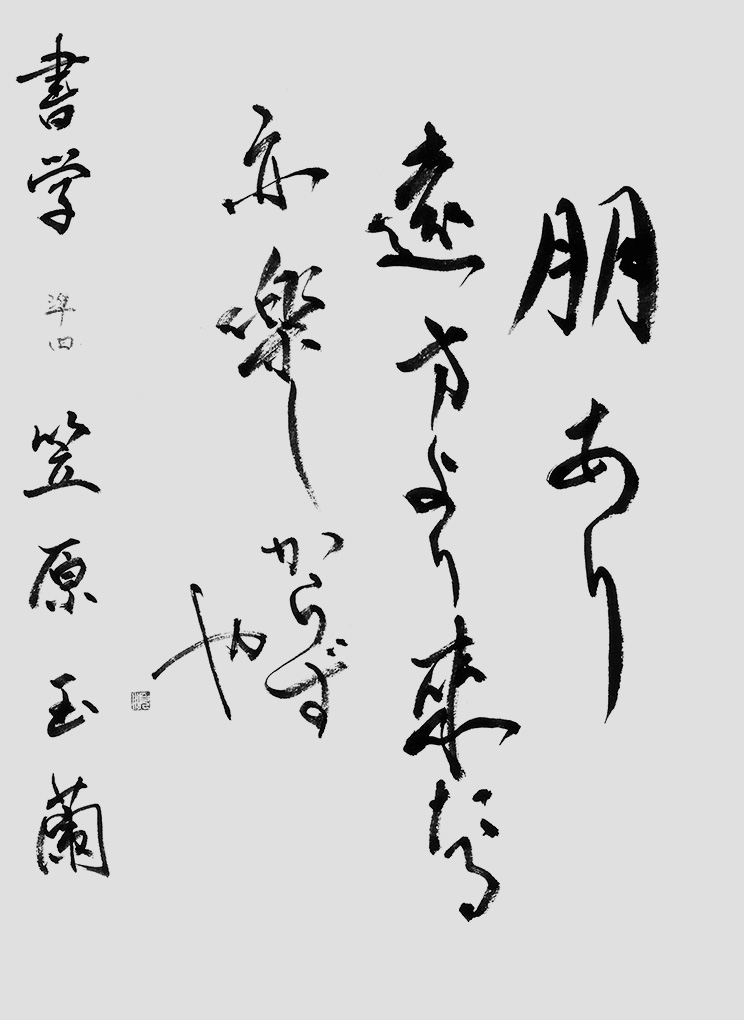 朋あり
遠方より来たる
亦楽しからず
や
書学 準四 笠原玉蘭